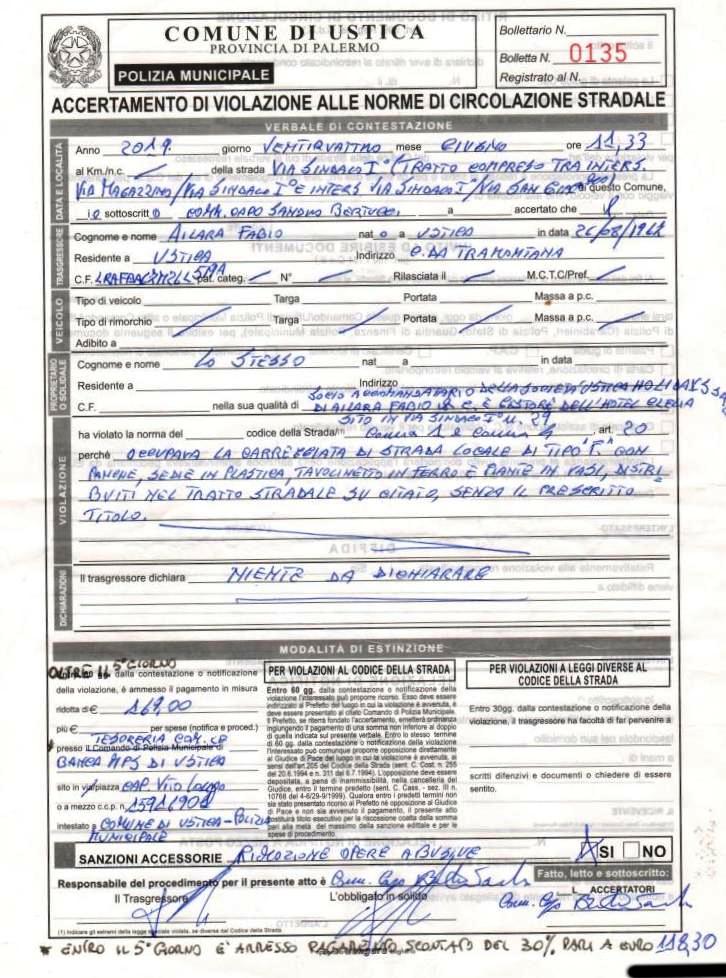 COMUNE DI USTICA
PROVINCIA DI PALERMO
POLIZIA MUNICIPALE
Bollettario N.
Bolletta N. 0135
Registrato al N.
ACCERTAMENTO DI VIOLAZIONE ALLE NORME DI CIRCOLAZIONE STRADALE
VERBALE DI CONTESTAZIONE
DATA E LOCALITÀ
Anno 2019 giorno VENTIQUATTRO mese GIUGNO ore 11,33
al Km./n.c. della strada VIA SINDACO I° (TRATTO COMPRESO TRA INTERS.
VIA MAGAZZINO/VIA SINDACO I° E INTERS VIA SINDACO I°/VIA SAN GIACOMO) di questo Comune,
i l sottoscritt o COMM. CAPO SANDRO BERTUCCI a accertato che
TRASGRESSORE
Cognome e nome AILARA FABIO nat o a USTICA in data
Residente a USTICA Indirizzo C.DA TRAMONTANA
C.F. pat. categ. N° Rilasciata il M.C.T.C/Pref.
VEICOLO
Tipo di veicolo Targa Portata Massa a p.c.
Tipo di rimorchio Targa Portata Massa a p.c.
Adibito a
PROPRIETARIO O SOLIDALE
Cognome e nome LO STESSO nat a in data
Residente a Indirizzo
SOCIO ACCOMANDATARIO DELLA SOCIETÀ USTICA HOLIDAYS SAS
C.F. nella sua qualità di DI AILARA FABIO & C. E GESTORE DELL'HOTEL CLELIA
SITO IN VIA SINDACO I° N. 29
VIOLAZIONE
ha violato la norma del codice della Strada/ comma 1 e comma 4, art. 20
perché OCCUPAVA LA CARREGGIATA DI STRADA LOCALE DI TIPO "F" CON
PANCHE, SEDIE IN PLASTICA, TAVOLINETTO IN FERRO E PIANTE IN VASI, DISTRI
BUITI NEL TRATTO STRADALE SU CITATO, SENZA IL PRESCRITTO
TITOLO.
DICHIARAZIONI
Il trasgressore dichiara NIENTE DA DICHIARARE
MODALITÀ DI ESTINZIONE
OLTRE IL 5° GIORNO
dalla contestazione o notificazione
della violazione, è ammesso il pagamento in misura
ridotta di € 169,00
più € per spese (notifica e proced.)
TESORERIA COM. C/O
presso il Comando di Polizia Municipale di
BANCA MPS DI USTICA
sito in via/piazza CAP. VITO LONGO
o a mezzo c.c.p. n.
intestato a COMUNE DI USTICA - POLIZIA
MUNICIPALE
PER VIOLAZIONI AL CODICE DELLA STRADA
Entro 60 gg. dalla contestazione o notificazione della violazione l'interessato può proporre ricorso. Esso deve essere
indirizzato al Prefetto del luogo in cui la violazione è avvenuta, e
deve essere presentato al citato Comando di Polizia Municipale.
Il Prefetto, se riterrà fondato l'accertamento, emetterà ordinanza
ingiungendo il pagamento di una somma non inferiore al doppio
di quella indicata sul presente verbale. Entro lo stesso termine
di 60 gg. dalla contestazione o notificazione della violazione
l'interessato può comunque proporre opposizione direttamente
al Giudice di Pace del luogo in cui la violazione è avvenuta, ai
sensi dell'art.205 del Codice della Strada (sent. C. Cost. n. 255
del 20.6.1994 e n. 311 del 6.7.1994). L'opposizione deve essere
depositata, a pena di inammissibilità, nella cancelleria del
Giudice, entro il termine predetto (sent. C. Cass. - sez. III n.
10768 del 4-6/29-9/1999). Qualora entro i predetti termini non
sia stato presentato ricorso al Prefetto né opposizione al Giudice
di Pace e non sia avvenuto il pagamento, il presente atto
costituirà titolo esecutivo per la riscossione coatta della somma
pari alla metà del massimo della sanzione edittale e per le
spese di procedimento.
PER VIOLAZIONI A LEGGI DIVERSE AL
CODICE DELLA STRADA
Entro 30gg. dalla contestazione o notificazione della
violazione, il trasgressore ha facoltà di far pervenire a
scritti difensivi e documenti o chiedere di essere
sentito.
SANZIONI ACCESSORIE RIMOZIONE OPERE ABUSIVE SI NO
Responsabile del procedimento per il presente atto è
Fatto, letto e sottoscritto:
Il Trasgressore L'obbligato in solido L ACCERTATORI
(1) Indicare gli estremi della legge violata, se diversa dal Codice della Strada.
* ENTRO IL 5° GIORNO È AMMESSO PAGAMENTO SCONTATO DEL 30% PARI A EURO 118,30